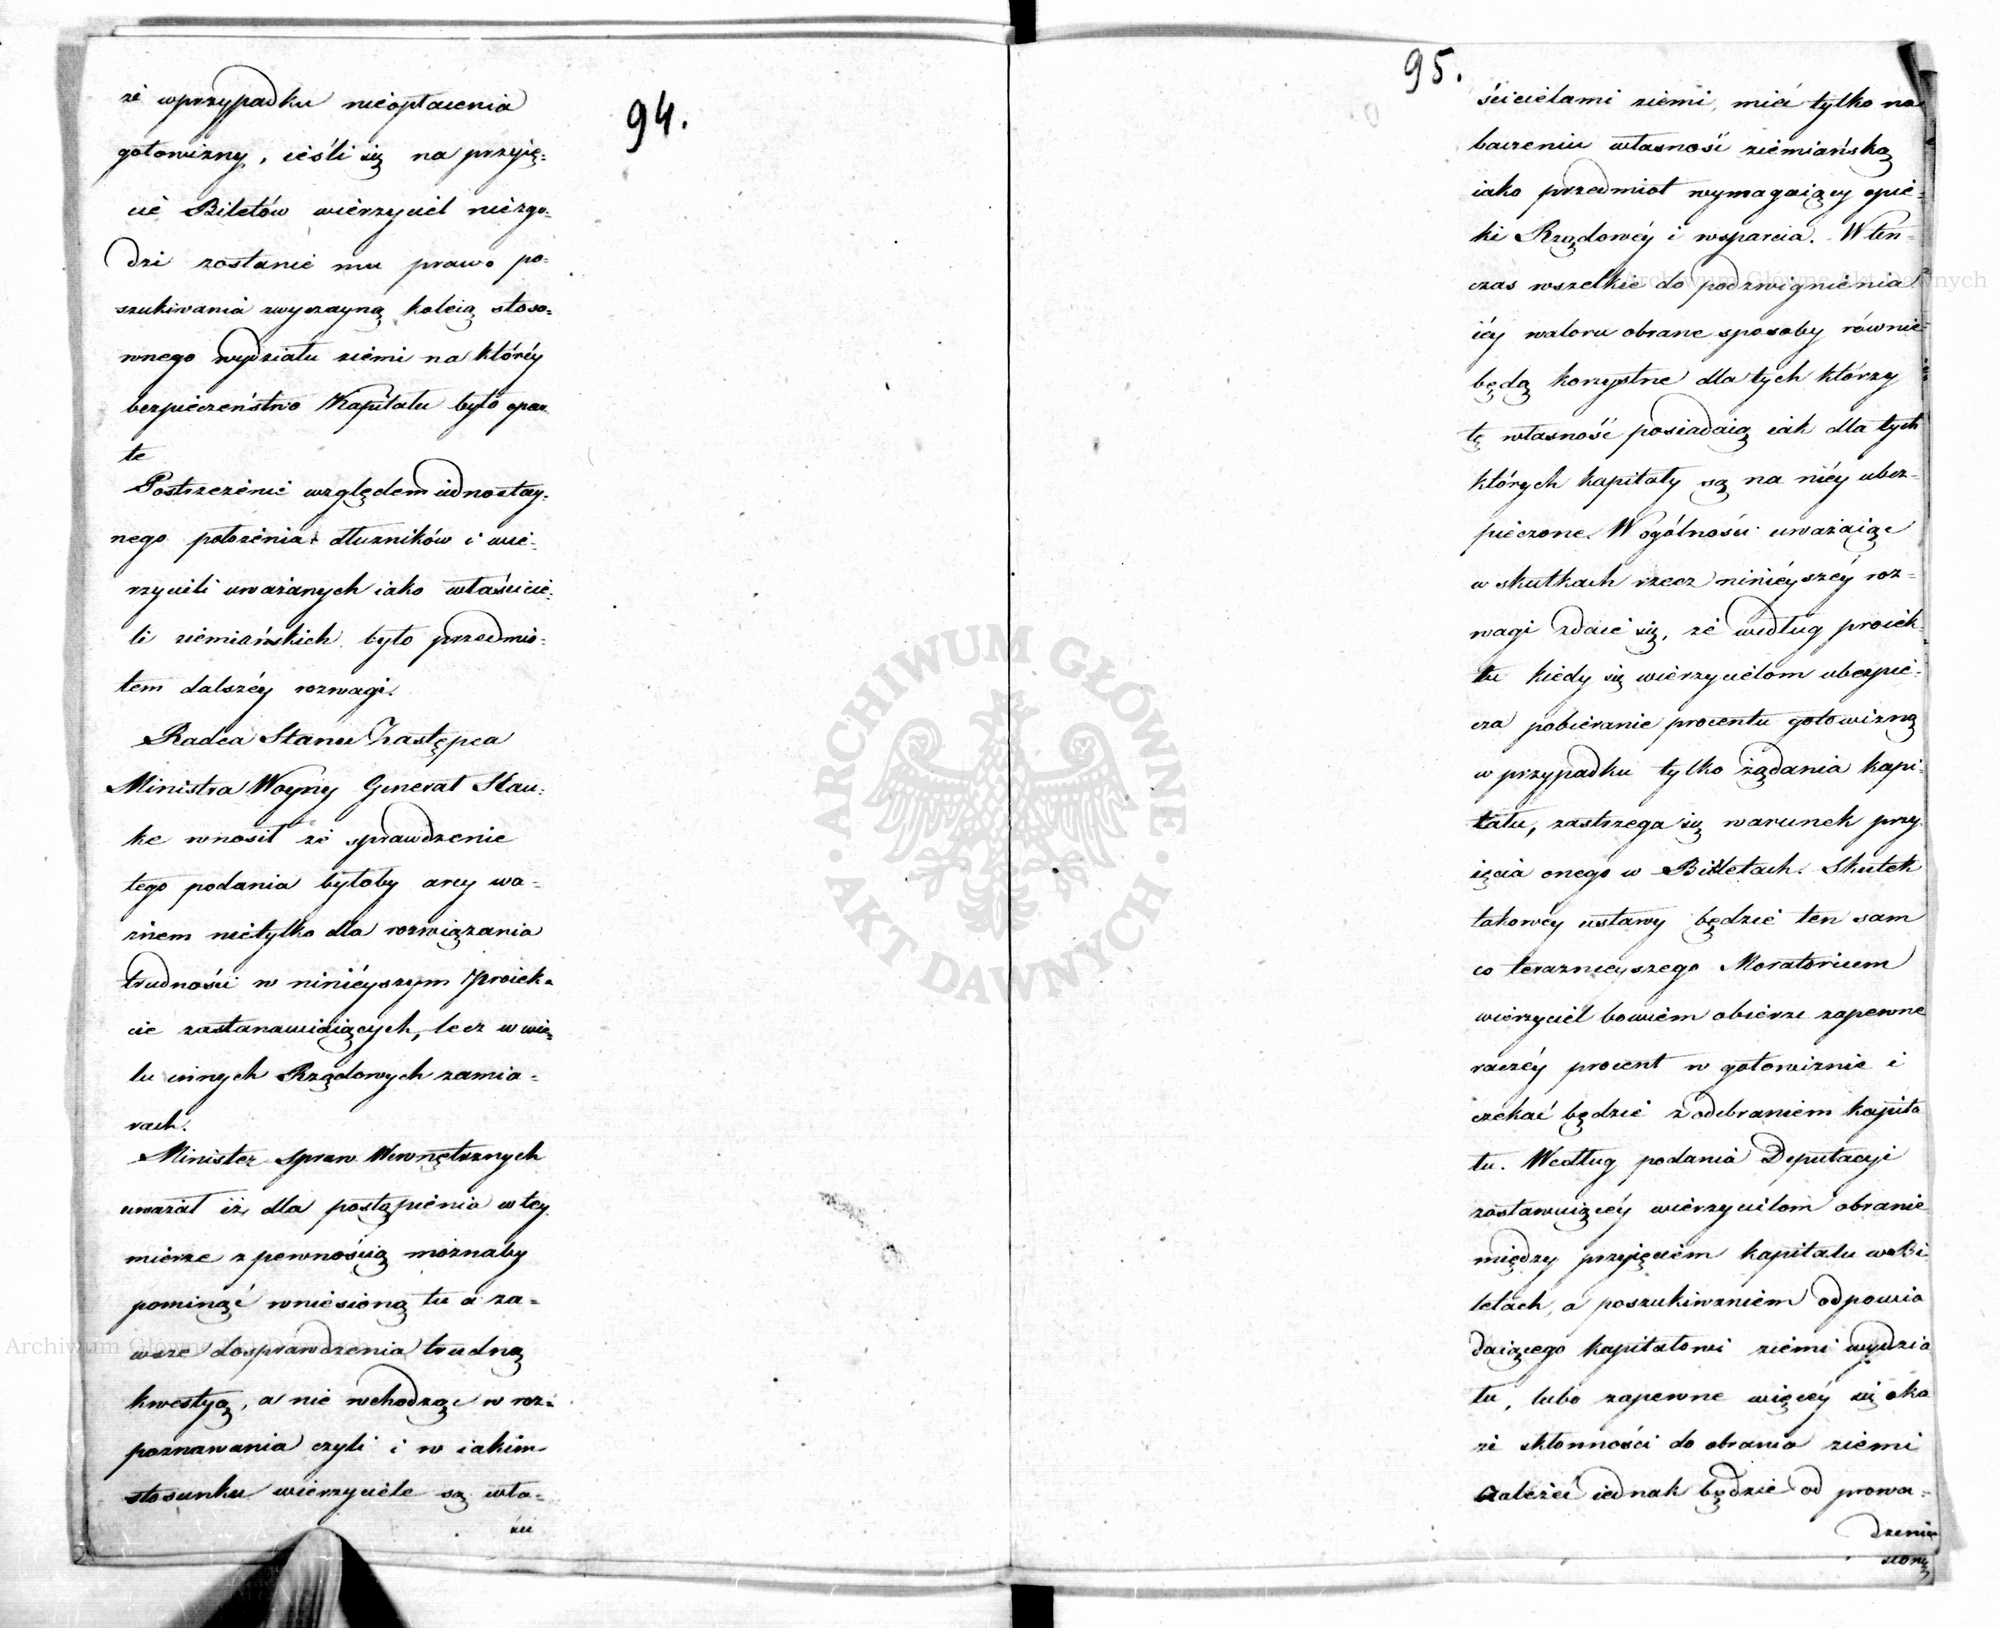 94.
że wprzypadku nieopłacenia
gotowizny, ieśli się na przyię=
cie Biletów wierzyciel niezgo=
dzi zostanie mu prawo po=
szukiwania zwyczayną koleią stoso=
wnego wydziału ziemi na któréy
bezpieczeństwo Kapitału było opar
te
Postrzeżenie względem iednostay=
nego położenia dłużników i wie=
rzycieli uważanych iako właścicie=
li ziemiańskich było przedmio=
tem dalszéy rozwagi.
Radca Stanu Zastępca
Ministra Woyny Generał Hau=
ke wnosił że sprawdzenie
tego podania byłoby arcy wa=
żnem nietylko dla rozwiązania
trudności w ninieyszym proiek=
cie zastanawiaiących, lecz w wie=
lu innych Rządowych zamia=
rach.
Minister Spraw Wewnętrznych
uważał iż, dla postąpienia w tey
mierze z pewnością możnaby
pominąć wniesioną tu a za=
wsze do sprawdzenia trudną
kwestyą, a nie wchodząc w roz=
poznawania czyli i w iakim
stosunku wierzyciele są wła=
ści
95.
ścicielami ziemi, mieć tylko na
baczeniu własność ziemiańską
iako przedmiot wymagaiący opie=
ki Rządowéy i wsparcia. W ten=
czas wszelkie do podzwignienia
iéy waloru obrane sposoby równie
będą korzystne dla tych którzy
tę własność posiadaią iak dla tych
których kapitały są na niéy ubez=
pieczone. W ogólności uważaiąc
w skutkach rzecz ninieyszéy roz=
wagi zdaie się, że według proiek=
tu kiedy się wierzycielom ubezpie=
cza pobieranie procentu gotowizną
w przypadku tylko żądania kapi=
tału, zastrzega się warunek przy
ięcia onego w Biletach. Skutek
takowéy ustawy będzie ten sam
co teraznieyszego Moratorium
wierzyciel bowiem obierze zapewne
raczéy procent w gotowiznie i
czekać będzie z odebraniem kapita
łu. Według podania Deputacyi
zostawuiącéy wierzycielom obranie
między przyjęciem kapitału w Bi
letach, a poszukiwaniem odpowia
daiącego kapitałowi ziemi wydzia
łu, lubo zapewne więcéy się oka
że skłonności do obrania ziemi
zależeć iednak będzie od prowa=
dzenia
Archiwum Główne Akt Dawnych
Archiwum Główne Akt Dawnych
ARCHIWUM GŁÓWNE
AKT DAWNYCH